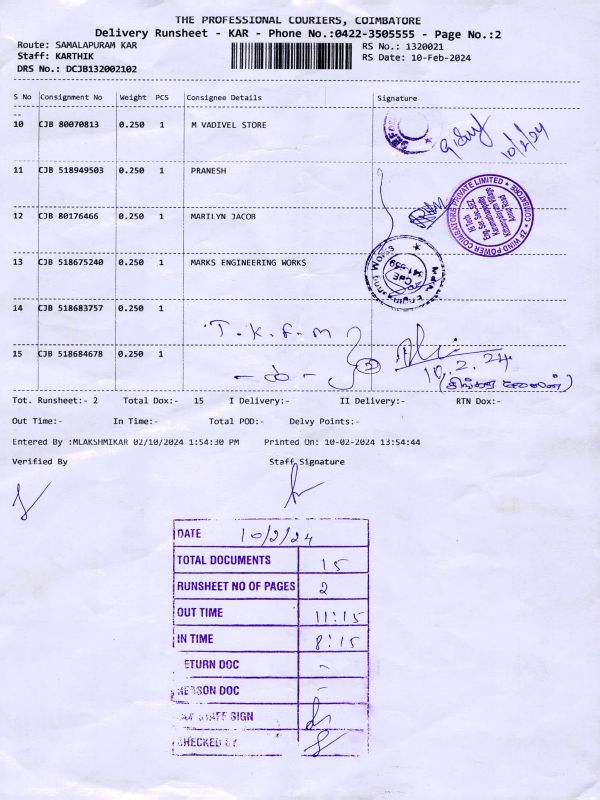 THE PROFESSIONAL COURIERS, COIMBATORE
Delivery Runsheet - KAR - Phone No.:0422-3505555 - Page No.:2
Route: SAMALAPURAM KAR RS No.: 1320021
Staff: KARTHIK RS Date: 10-Feb-2024
DRS No.: DCJB132002102
S No Consignment No Weight PCS Consignee Details Signature
10 CJB 80070813 0.250 1 M VADIVEL STORE
10/2/24
11 CJB 518949503 0.250 1 PRANESH
12 CJB 80176466 0.250 1 MARILYN JACOB
ZF WIND POWER COIMBATORE PRIVATE LIMITED * COIMBATORE
13 CJB 518675240 0.250 1 MARKS ENGINEERING WORKS
14 CJB 518683757 0.250 1
T.K.F.M
15 CJB 518684678 0.250 1
2
10.2.24
Tot. Runsheet:- 2 Total Dox:- 15 I Delivery:- II Delivery:- RTN Dox:-
Out Time:- In Time:- Total POD:- Delvy Points:-
Entered By :MLAKSHMIKAR 02/10/2024 1:54:30 PM Printed On: 10-02-2024 13:54:44
Verified By Staff Signature
DATE 10/2/24
TOTAL DOCUMENTS 15
RUNSHEET NO OF PAGES 2
OUT TIME 11:15
IN TIME 8:15
ETURN DOC -
DOC -
STAFF SIGN
CHECKED BY